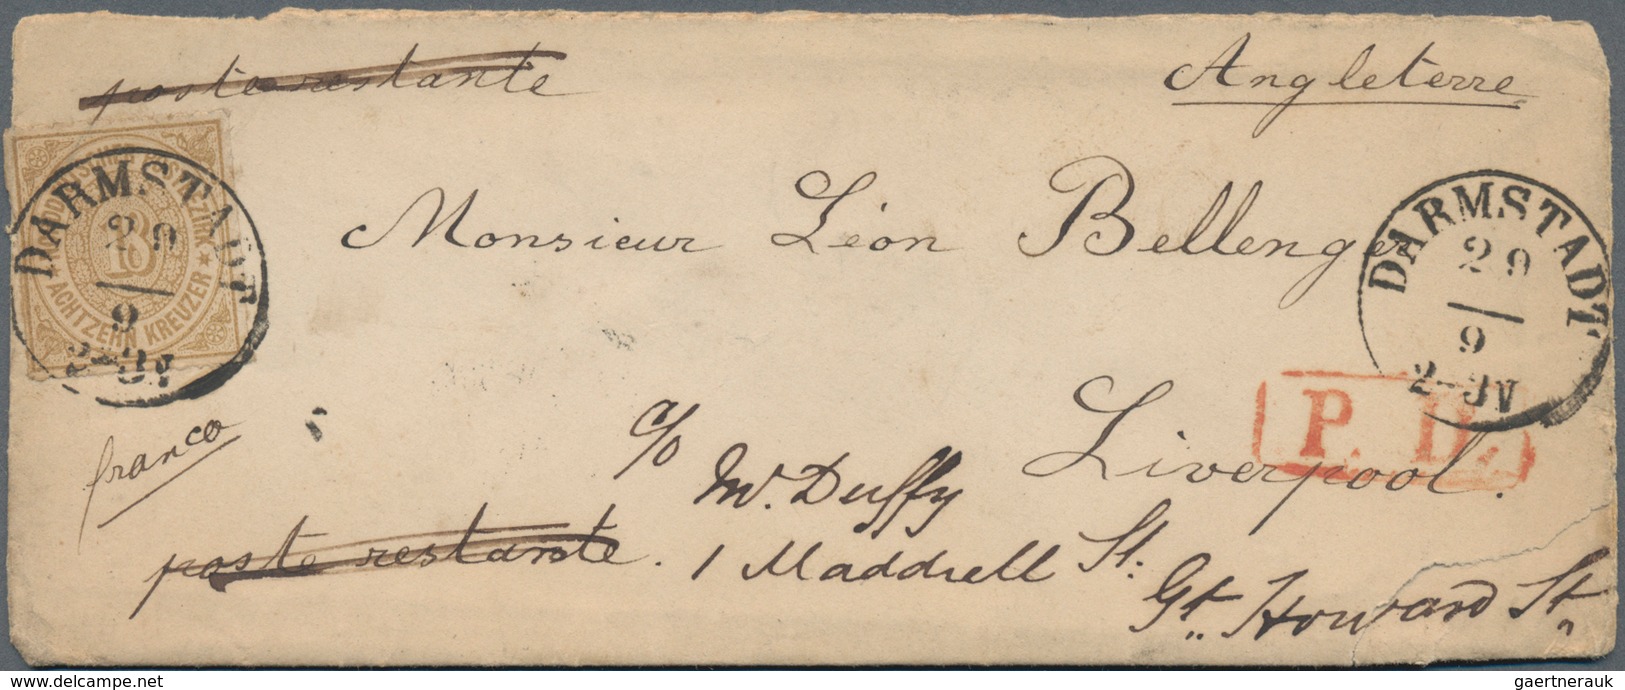 poste restante
Angleterre
NORDDEUTSCHER POSTBEZIRK
18
* ACHTZEHN KREUZER *
DARMSTADT
29
9
2-3N
Monsieur Léon Bellenger
DARMSTADT
29
9
2-3N
P. D.
franco
Liverpool.
c/o Mr. Duffy
poste restante.
1 Maddrell St:
Gt. Howard St.
www.delcampe.net
gaertnerauk